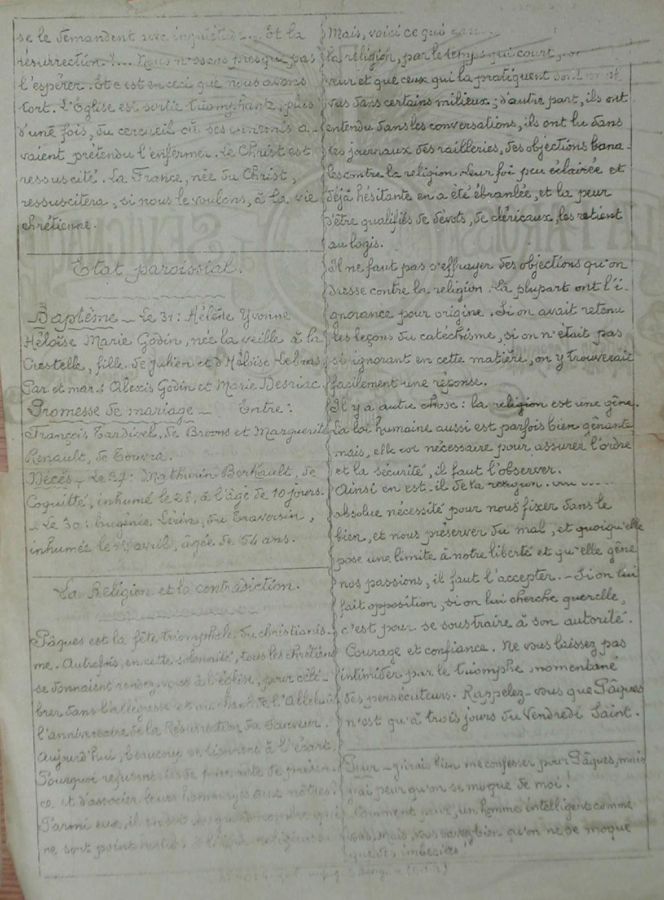 se le demandent avec inquiétude... Et la
résurrection ?... Nous n'osons presque pas
l'espérer. Et c'est en ceci que nous avons
tort. L'Eglise est sortie triomphante, plus
d'une fois, du cercueil où ses ennemis a-
vaient prétendu l'enfermer. Le Christ est
ressuscité. La France, née du Christ,
ressuscitera, si nous le voulons, à la vie
chrétienne.
Etat paroissial.
Baptême - Le 31: Hélène Yvonne
Héloïse Marie Godin, née la veille à la
Crestelle, fille de Julien et d'Héloïse
Par. et mar. : Alexis Godin et Marie Desriac.
Promesse de mariage - Entre :
François Tardivel, de Broons et Marguerite
Renault, de
Décès - Le 27: Mathurin de
inhumé le 28, à l'âge de 10 jours.
- Le 30: Eugénie du
inhumée le avril, âgée de 54 ans.
La Religion et la contradiction.
Pâques est la fête triomphale du christianis-
me. Autrefois, en cette solennité, tous les chrétiens
se donnaient rendez-vous à l'église, pour célé-
brer dans l'allégresse et au chant de l'Alleluia
l'anniversaire de la Résurrection du Sauveur.
Aujourd'hui, beaucoup se tiennent à l'écart.
Pourquoi refusent-ils de
et d'associer leurs hommages aux nôtres ?
Parmi eux, il en est
ne sont point
Mais, voici ce qui
la religion, par le temps qui court,
et que ceux qui la pratiquent sont
vus dans certains milieux ; d'autre part, ils ont
entendu dans les conversations, ils ont lu dans
les journaux des railleries, des objections bana-
les contre la religion. Leur foi peu éclairée et
déjà hésitante en a été ébranlée, et la peur
d'être qualifiés de dévots, de cléricaux les retient
au logis.
Il ne faut pas s'effrayer des objections qu'on
dresse contre la religion. La plupart ont l'i-
gnorance pour origine. Si on avait retenu
les leçons du catéchisme, si on n'était pas
si ignorant en cette matière, on y trouverait
facilement une réponse.
Il y a autre chose : la religion est une gêne.
La loi humaine aussi est parfois bien gênante
mais, elle est nécessaire pour assurer l'ordre
et la sécurité, il faut l'observer.
Ainsi en est-il de la religion.
absolue nécessité pour nous fixer dans le
bien, et nous préserver du mal, et quoiqu'elle
pose une limite à notre liberté et qu'elle gêne
nos passions, il faut l'accepter. - Si on lui
fait opposition, si on lui cherche querelle,
c'est pour se soustraire à son autorité.
Courage et confiance. Ne vous laissez pas
intimider par le triomphe momentané
des persécuteurs. Rappelez-vous que Pâques
n'est qu'à trois jours du Vendredi Saint.
- J'irai bien me confesser pour Pâques, mais
j'ai peur qu'on se moque de moi !
Comment un homme intelligent comme
vous, Mais, vous savez bien qu'on ne se moque
imbéciles